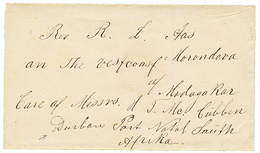 Rev R. L. Aas
on The Vestcoast Morondova
of Madagaskar
Care of Messrs. M J. Mc. Cubben
Durban Port Natal South
Afrika